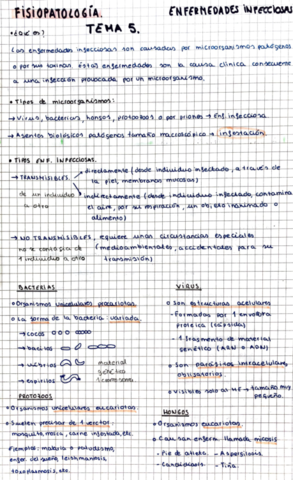 FISIOPATOLOGÍA.
ENFERMEDADES INFECCIOSAS
TEMA 5.
• ¿QUÉ ES?
Las enfermedades infecciosas son causadas por microorganismos patógenos
o por sus toxinas. Estas enfermedades son la causa clínica consecuente
a una infección provocada por un microorganismo.
• Tipos de microorganismos:
→ Virus, bacterias, hongos, protozoos o por priones → Enf. infecciosa
→ Agentes biológicos patógenos tamaño macroscópico → infestación
• TIPOS ENF. INFECCIOSAS.
→ TRANSMISIBLES
de un individuo
a otro
directamente (desde individuo infectado, a través de
la piel, membranas mucosas)
indirectamente (desde individuo infectado, contamina
el aire, por su respiración, un objeto inanimado o
alimento)
→ NO TRANSMISIBLES, requiere unas circunstancias especiales
no se contagia de
1 individuo a otro
(medioambientales, accidentales para su
transmisión)
BACTERIAS
• Organismos unicelulares procariotas.
• La forma de la bacteria variada
→ cocos
→ bacilos
→ vibrios
→ espirilos
material
genético
1 cromosoma
PROTOZOOS
• Organismos unicelulares eucariotas.
• Suelen precisar de 1 vector
mosquito, mosca, carne infestada, etc.
Ejemplos: malaria o paludismo,
enfer. del sueño, leishmaniosis
toxoplasmosis, etc.
VIRUS
• Son estructuras acelulares
- Formadas por 1 envoltura
proteica (cápsida)
- 1 fragmento de material
genético (ARN o ADN)
• Son parásitos intracelulares
obligatorios.
• Visibles solo al ME → tamaño muy
pequeño.
HONGOS
• Organismos eucariotas.
• Causan enferm. llamada micosis
- Pie de atleta. - Aspergilosis
- Candidiasis - Tiña.